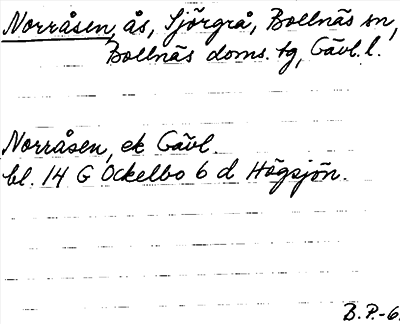 Norråsen, ås, Sjörgrå, Bollnäs sn,
Bollnäs doms. tg, Gävl. l.
Norråsen, ek Gävl.
bl. 14 G Ockelbo 6 d Högsjön.
B.P.-6